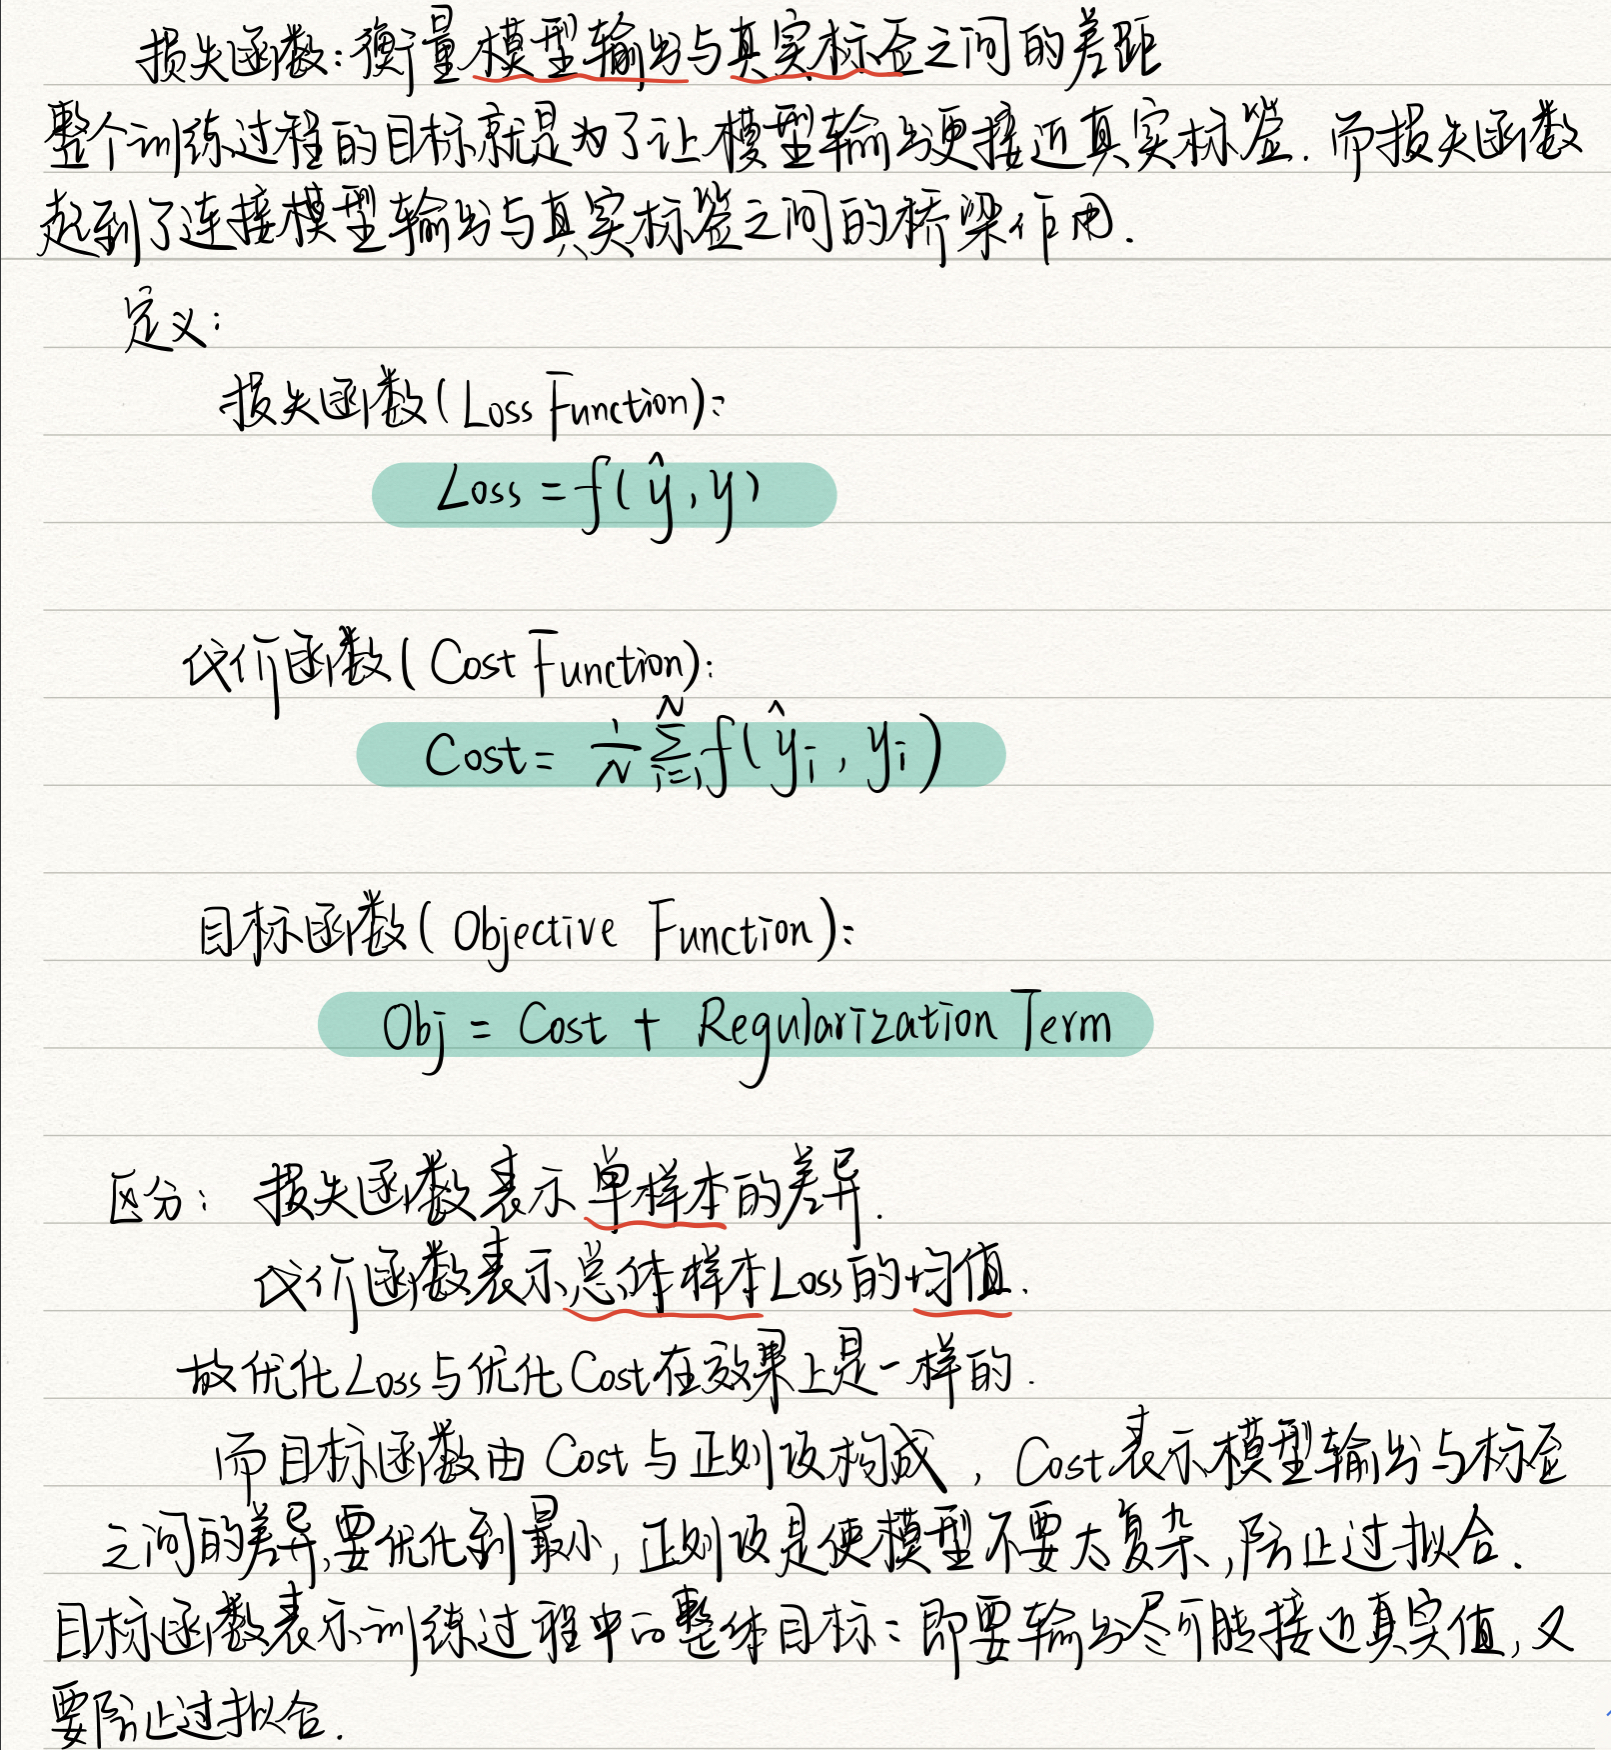 损失函数:衡量模型输出与真实标签之间的差距
整个训练过程的目标就是为了让模型输出更接近真实标签.而损失函数
起到了连接模型输出与真实标签之间的桥梁作用.
定义:
损失函数(Loss Function):
Loss = f(ŷ, y)
代价函数(Cost Function):
Cost = 1/N ∑_{i=1}^{N} f(ŷᵢ, yᵢ)
目标函数(Objective Function):
Obj = Cost + Regularization Term
区分: 损失函数表示单样本的差异.
代价函数表示总体样本Loss的均值.
故优化Loss与优化Cost在效果上是一样的.
而目标函数由Cost与正则项构成,Cost表示模型输出与标签
之间的差异,要优化到最小,正则项是使模型不要太复杂,防止过拟合.
目标函数表示训练过程中的整体目标:即要输出尽可能接近真实值,又
要防止过拟合.